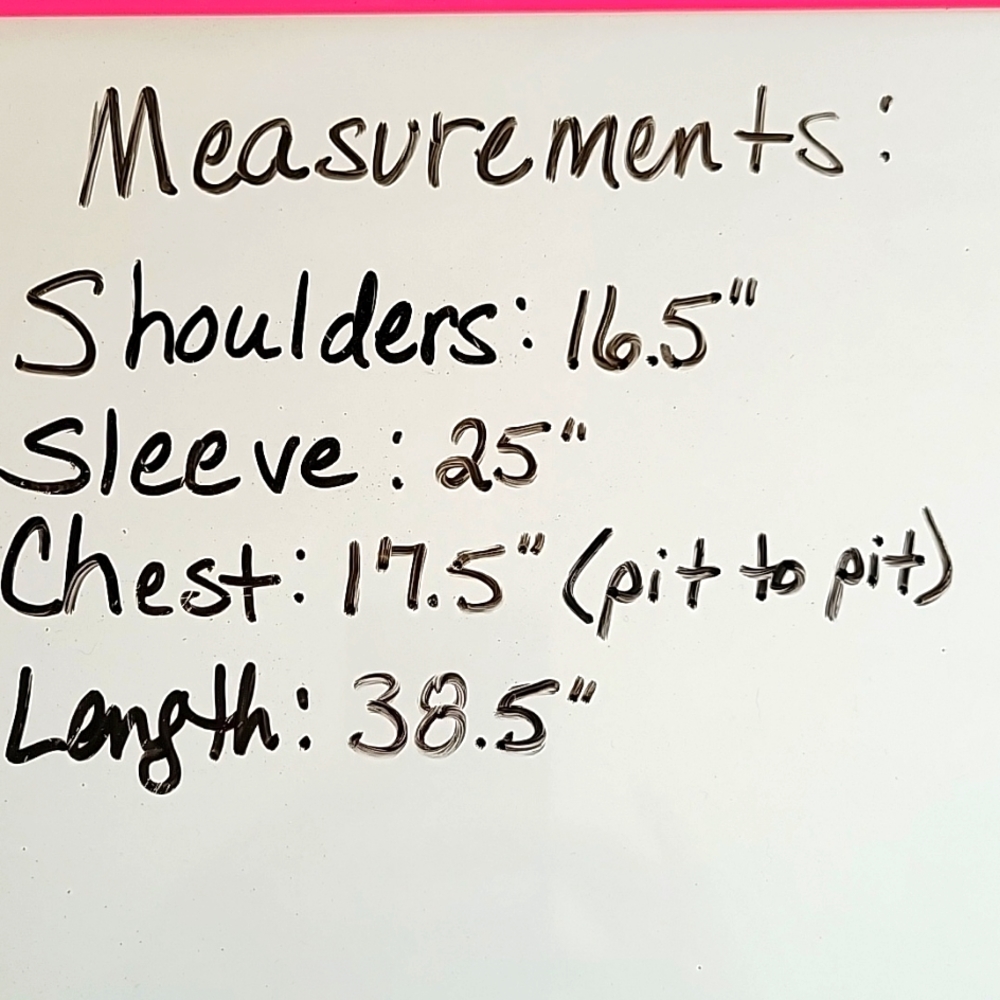 Measurements:
Shoulders: 16.5"
Sleeve: 25"
Chest: 17.5" (pit to pit)
Length: 38.5"